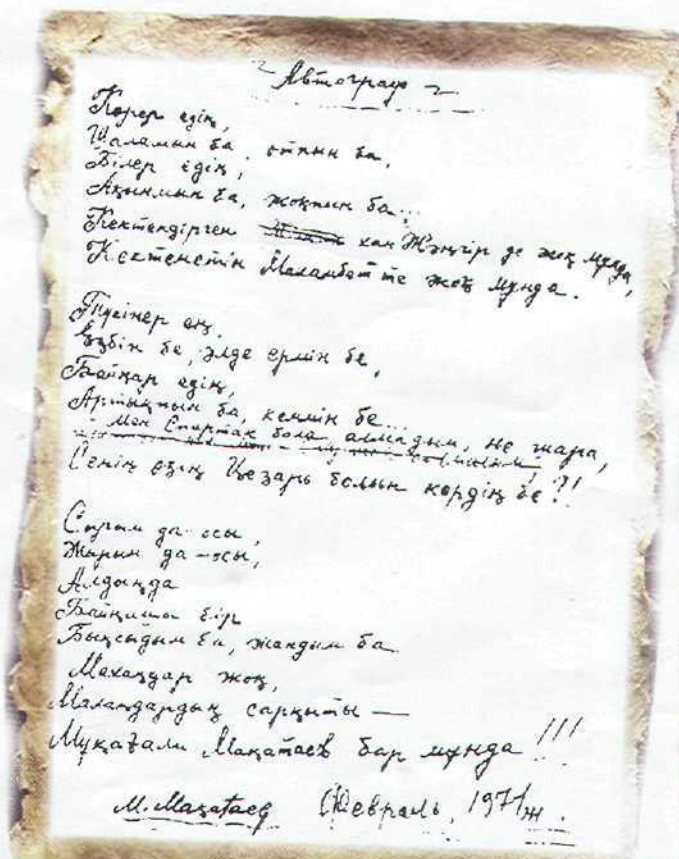 Автограф
Көрер едің,
Шаламын ба, отпын ба,
Білер едің,
Ақынмын ба, жоқпын ба...
Кектендірген хан Жәңгір де жоқ мұнда,
Кектенетін Махамбет те жоқ мұнда.
Түсінер ең,
Ездін бе, әлде ермін бе,
Байқар едің,
Артықпын ба, кеммін бе...
Мен Спартак бола алмадым, не шара,
Сенің өзің Цезарь болып көрдің бе?!
Сырым да - осы,
Жырым да - осы,
Алдыңда
Байқашы бір
Бықсыдым ба, жандым ба
Махаңдар жоқ,
Махаңдардың сарқыты —
Мұқағали Мақатаев бар мұнда!!!
М. Мақатаев Февраль, 1971 ж.